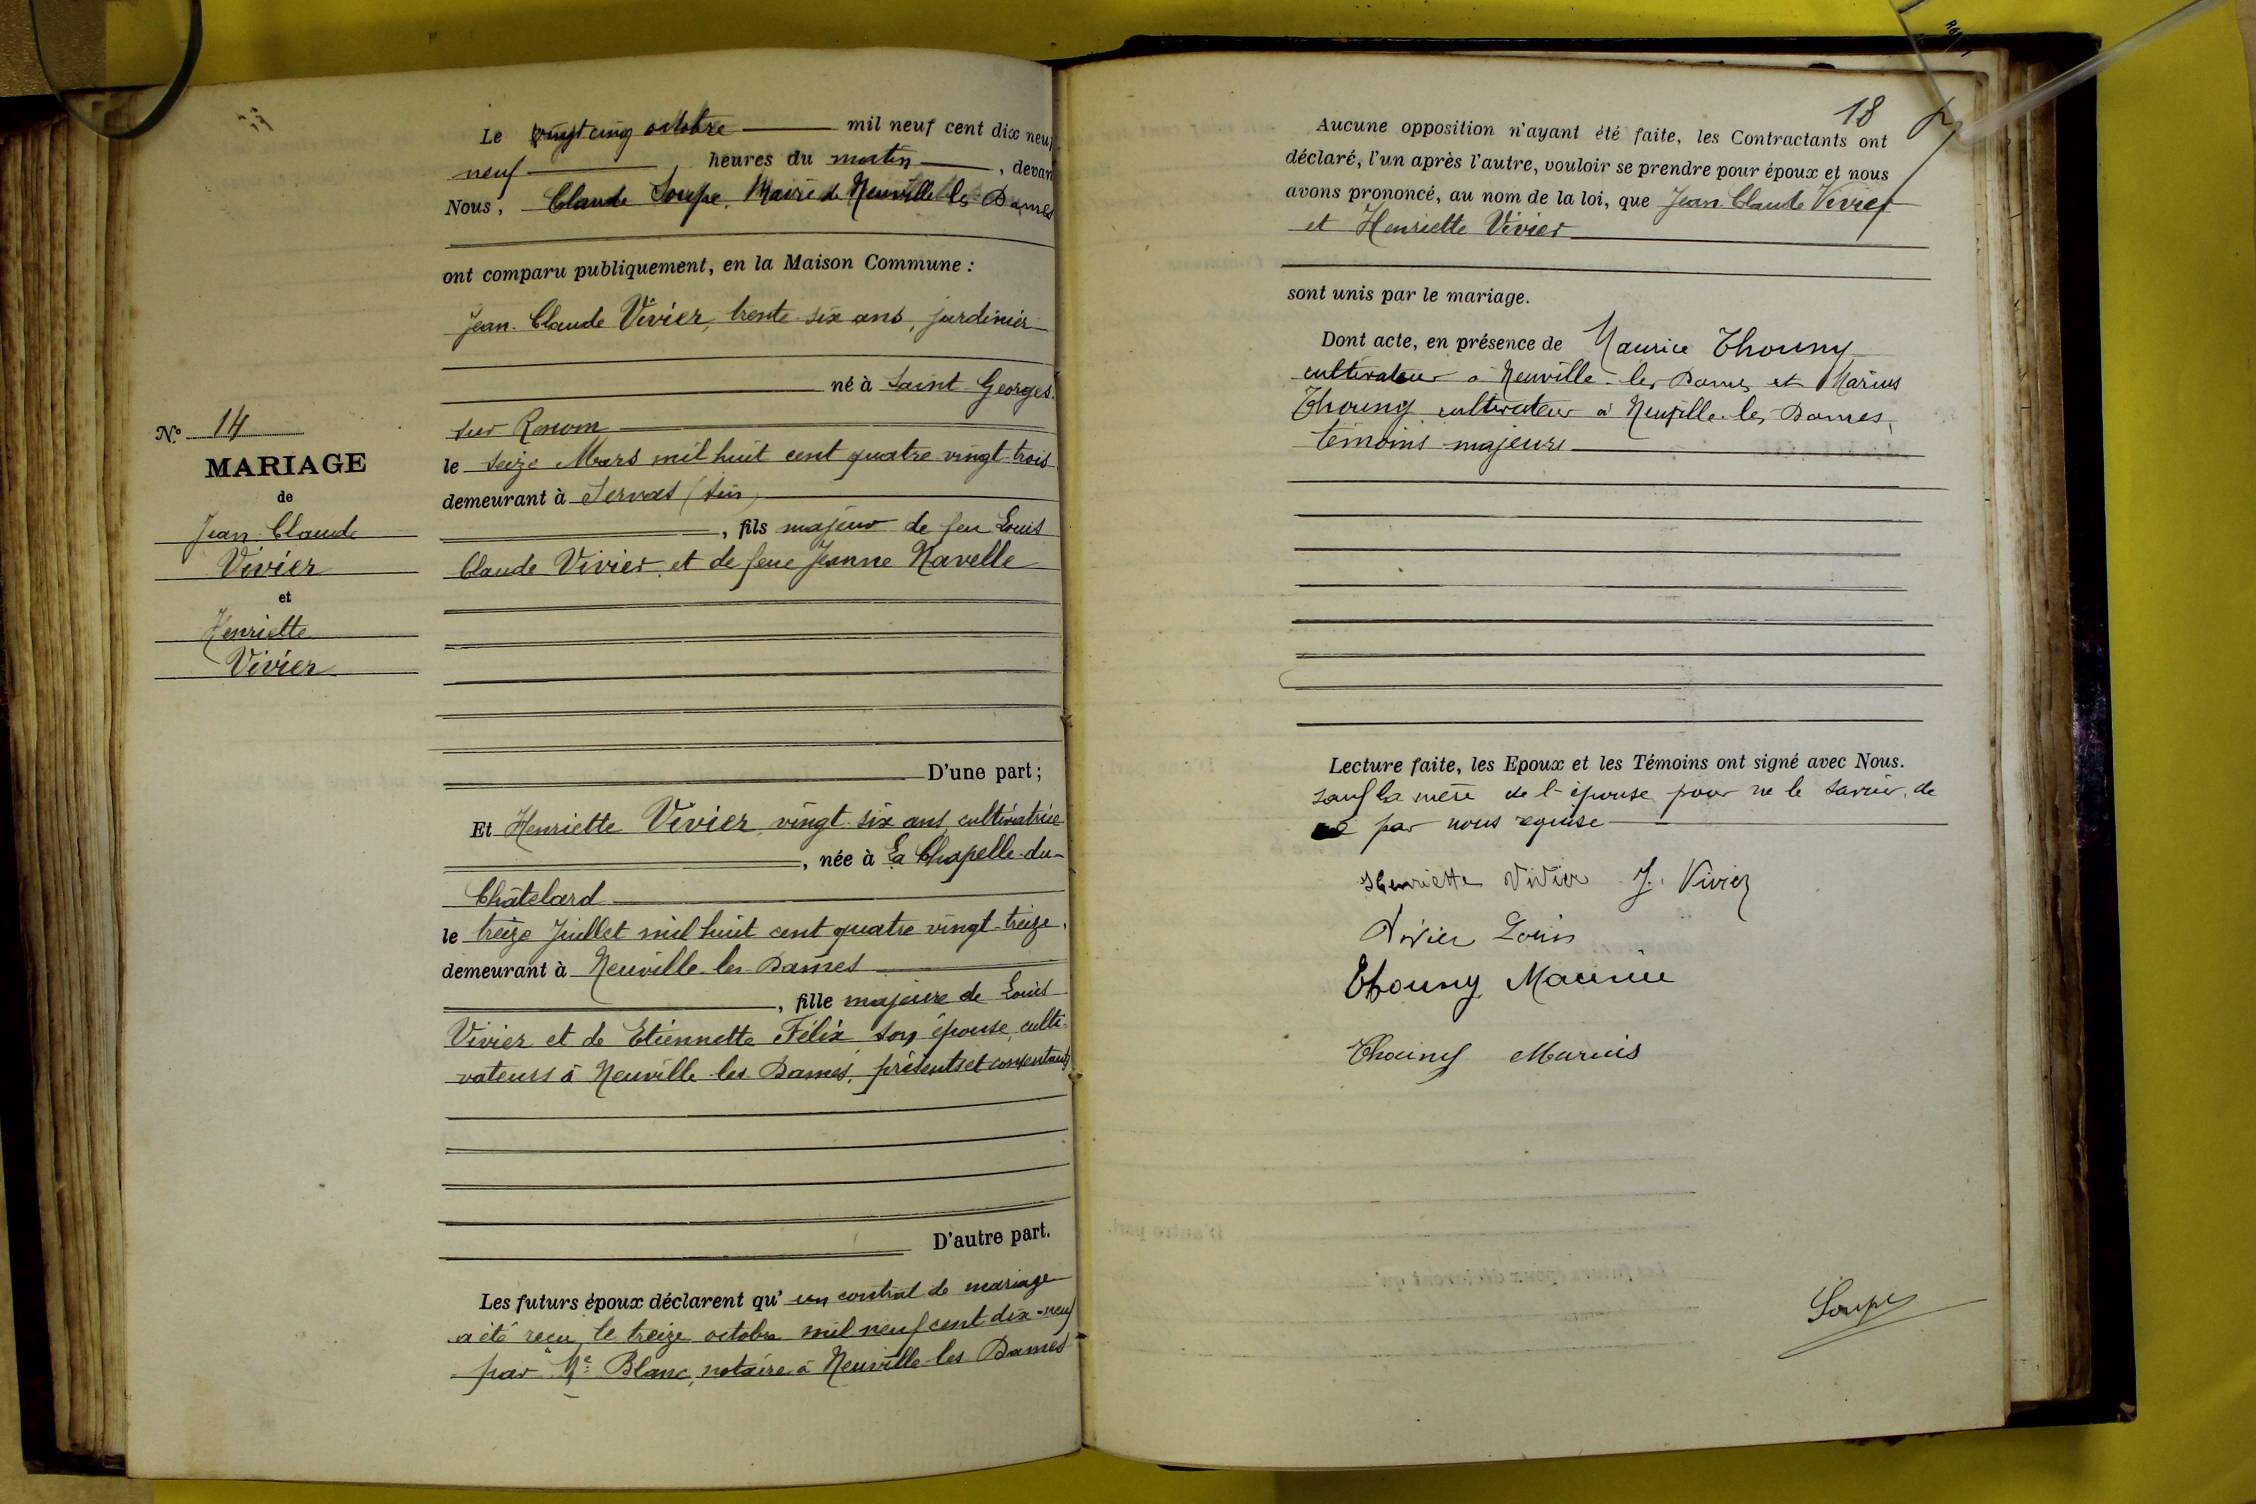 Le vingt cinq octobre mil neuf cent dix neuf
neuf heures du matin, devant
Nous, Claude Soupe, Maire de Neuville les Dames
ont comparu publiquement, en la Maison Commune :
Jean-Claude Vivier, trente-six ans, jardinier
né à Saint-Georges
sur Renom
le seize Mars mil huit cent quatre vingt-trois
demeurant à Servas (Ain)
, fils majeur de feu Louis
Claude Vivier et de feue Jeanne Navelle
D'une part ;
Nº 14
MARIAGE
de
Jean Claude
Vivier
et
Henriette
Vivier
Et Henriette Vivier, vingt-six ans, cultivatrice
, née à La Chapelle-du-
Châtelard
le treize Juillet mil huit cent quatre vingt-treize,
demeurant à Neuville-les-Dames
, fille majeure de Louis
Vivier et de Etiennette Félix son épouse, culti-
vateurs à Neuville-les-Dames, présents et consentants
D'autre part.
Les futurs époux déclarent qu' un contrat de mariage
a été reçu le treize octobre mil neuf cent dix-neuf
par Mᵉ Blanc, notaire à Neuville-les Dames
18
Aucune opposition n'ayant été faite, les Contractants ont
déclaré, l'un après l'autre, vouloir se prendre pour époux et nous
avons prononcé, au nom de la loi, que Jean-Claude Vivier
et Henriette Vivier
sont unis par le mariage.
Dont acte, en présence de Maurice Thouny
cultivateur à Neuville-les Dames et Marius
Thouny cultivateur à Neuville-les Dames,
témoins majeurs
Lecture faite, les Epoux et les Témoins ont signé avec Nous.
sauf la mère de l'épouse pour ne le savoir, de
ce par nous requise
Henriette Vivier J. Vivier
Vivier Louis
Thouny Maurice
Thouny Marius
Soupe